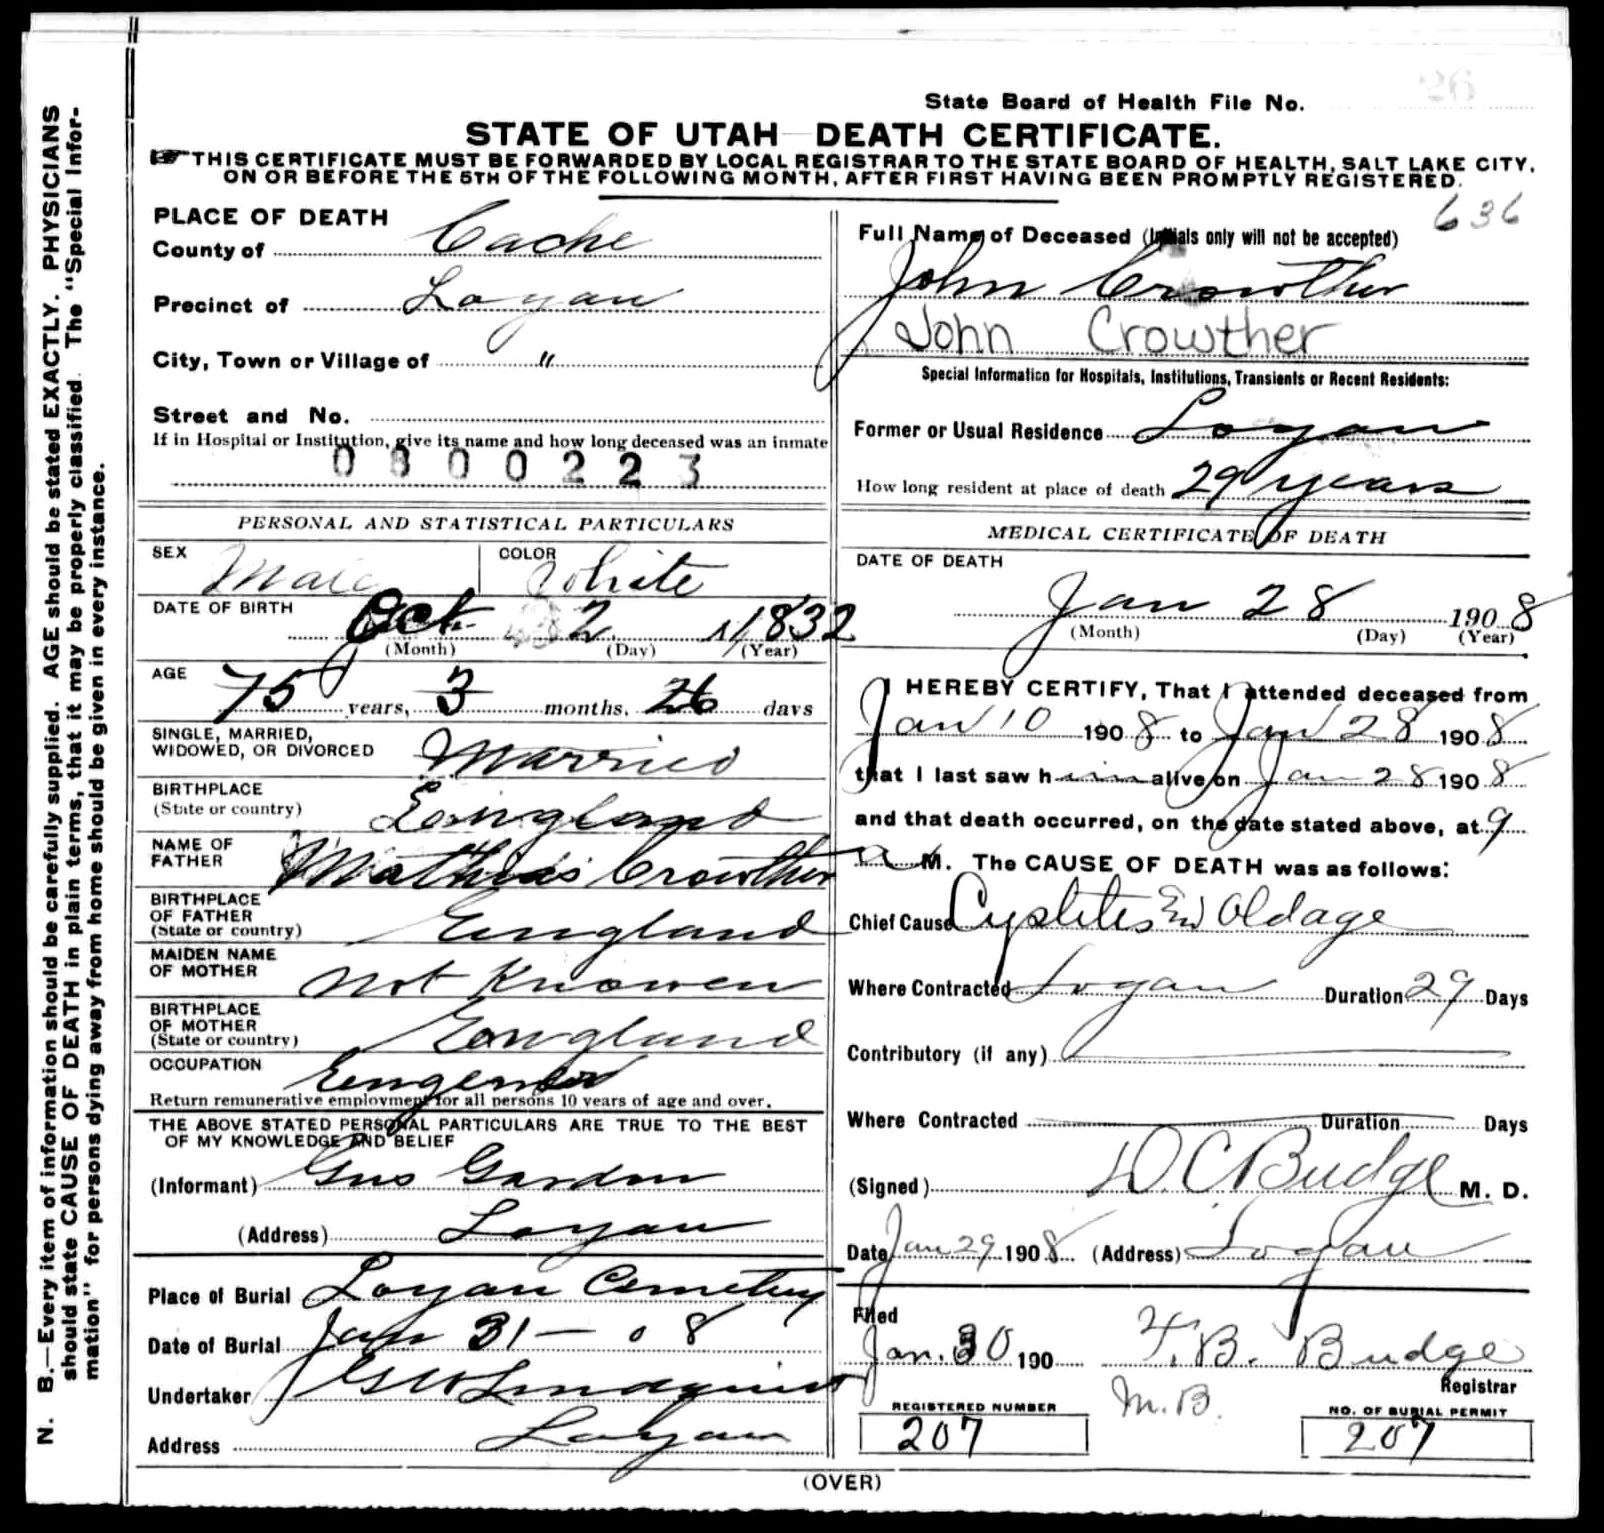 State Board of Health File No. 26
STATE OF UTAH—DEATH CERTIFICATE.
☞THIS CERTIFICATE MUST BE FORWARDED BY LOCAL REGISTRAR TO THE STATE BOARD OF HEALTH, SALT LAKE CITY,
ON OR BEFORE THE 5TH OF THE FOLLOWING MONTH, AFTER FIRST HAVING BEEN PROMPTLY REGISTERED.
636
N. B.—Every item of information should be carefully supplied. AGE should be stated EXACTLY. PHYSICIANS
should state CAUSE OF DEATH in plain terms, that it may be properly classified. The "Special Infor-
mation" for persons dying away from home should be given in every instance.
PLACE OF DEATH
County of Cache
Precinct of Logan
City, Town or Village of "
Street and No.
If in Hospital or Institution, give its name and how long deceased was an inmate
0800223
PERSONAL AND STATISTICAL PARTICULARS
SEX Male COLOR White
DATE OF BIRTH
Oct. 2 1832
(Month) (Day) (Year)
AGE
75 years, 3 months, 26 days
SINGLE, MARRIED,
WIDOWED, OR DIVORCED Married
BIRTHPLACE
(State or country) England
NAME OF
FATHER Crowther
BIRTHPLACE
OF FATHER
(State or country) England
MAIDEN NAME
OF MOTHER not Knowen
BIRTHPLACE
OF MOTHER
(State or country) England
OCCUPATION
Return remunerative employment for all persons 10 years of age and over.
THE ABOVE STATED PERSONAL PARTICULARS ARE TRUE TO THE BEST
OF MY KNOWLEDGE AND BELIEF
(Informant) Gus Gordon
(Address) Logan
Place of Burial Logan Cemetery
Date of Burial Jan 31—08
Undertaker G W Lindquist
Address Logan
Full Name of Deceased (Initials only will not be accepted)
John Crowther
John Crowther
Special Information for Hospitals, Institutions, Transients or Recent Residents:
Former or Usual Residence Logan
How long resident at place of death 29 years
MEDICAL CERTIFICATE OF DEATH
DATE OF DEATH
Jan 28 1908
(Month) (Day) (Year)
I HEREBY CERTIFY, That I attended deceased from
Jan 10 1908 to Jan 28 1908
that I last saw him alive on Jan 28 1908
and that death occurred, on the date stated above, at 9
a M. The CAUSE OF DEATH was as follows:
Chief Cause Cystites Old age
Where Contracted Logan Duration 29 Days
Contributory (if any)
Where Contracted Duration Days
(Signed) D. C. Budge M. D.
Date Jan 29 1908 (Address) Logan
Filed
Jan. 30 190 F. B. Budge
Registrar
M. B.
REGISTERED NUMBER
207
NO. OF BURIAL PERMIT
207
(OVER)